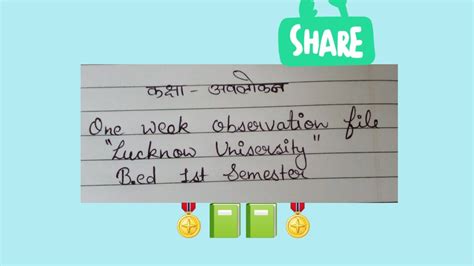 SHARE
कक्षा - अवलोकन
One weak observation file
"Lucknow University"
B.ed 1st Semester